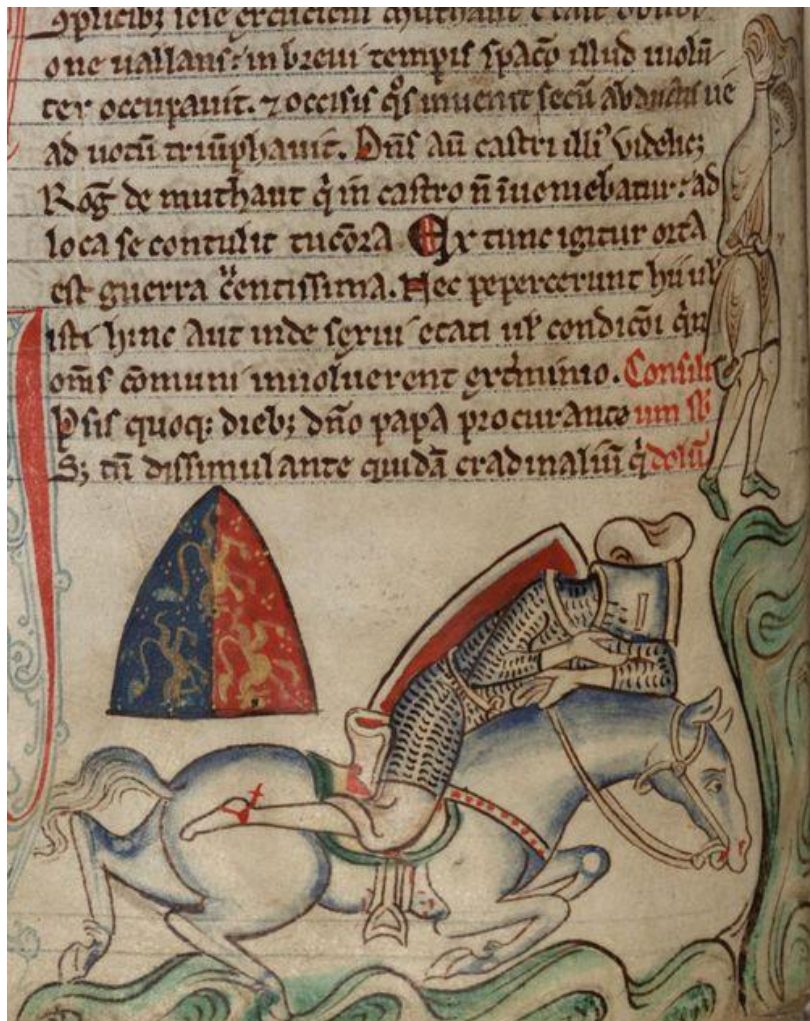 one uallans: in breui tempris spacō illud uiolū
ter occupauit. ⁊ occisis qͦs inuenit secū ue
ad uotū triūphauit. Dn̄s aū castri illiꝰ videlicꝫ
Rog̃ de muthaut qͥ in castro n̄ īueniebatur: ad
loca se contulit tucōra Ex tunc igitur orta
est guerra cͧentissima. Nec pepercerunt hii ul̕
isti hinc aut inde sexui etati ul̕ condicōi qͥn
om̄s cōmuni inuoluerent extͥminio. Consili
Ipsis quoqꝫ diebꝫ dn̄o papa procurante um sb̕
Sꝫ tn̄ dissimulante quidā cradinaliū qͥ